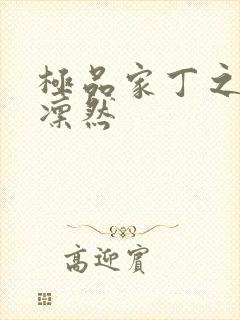 極品家丁之
凜然
高迎賓